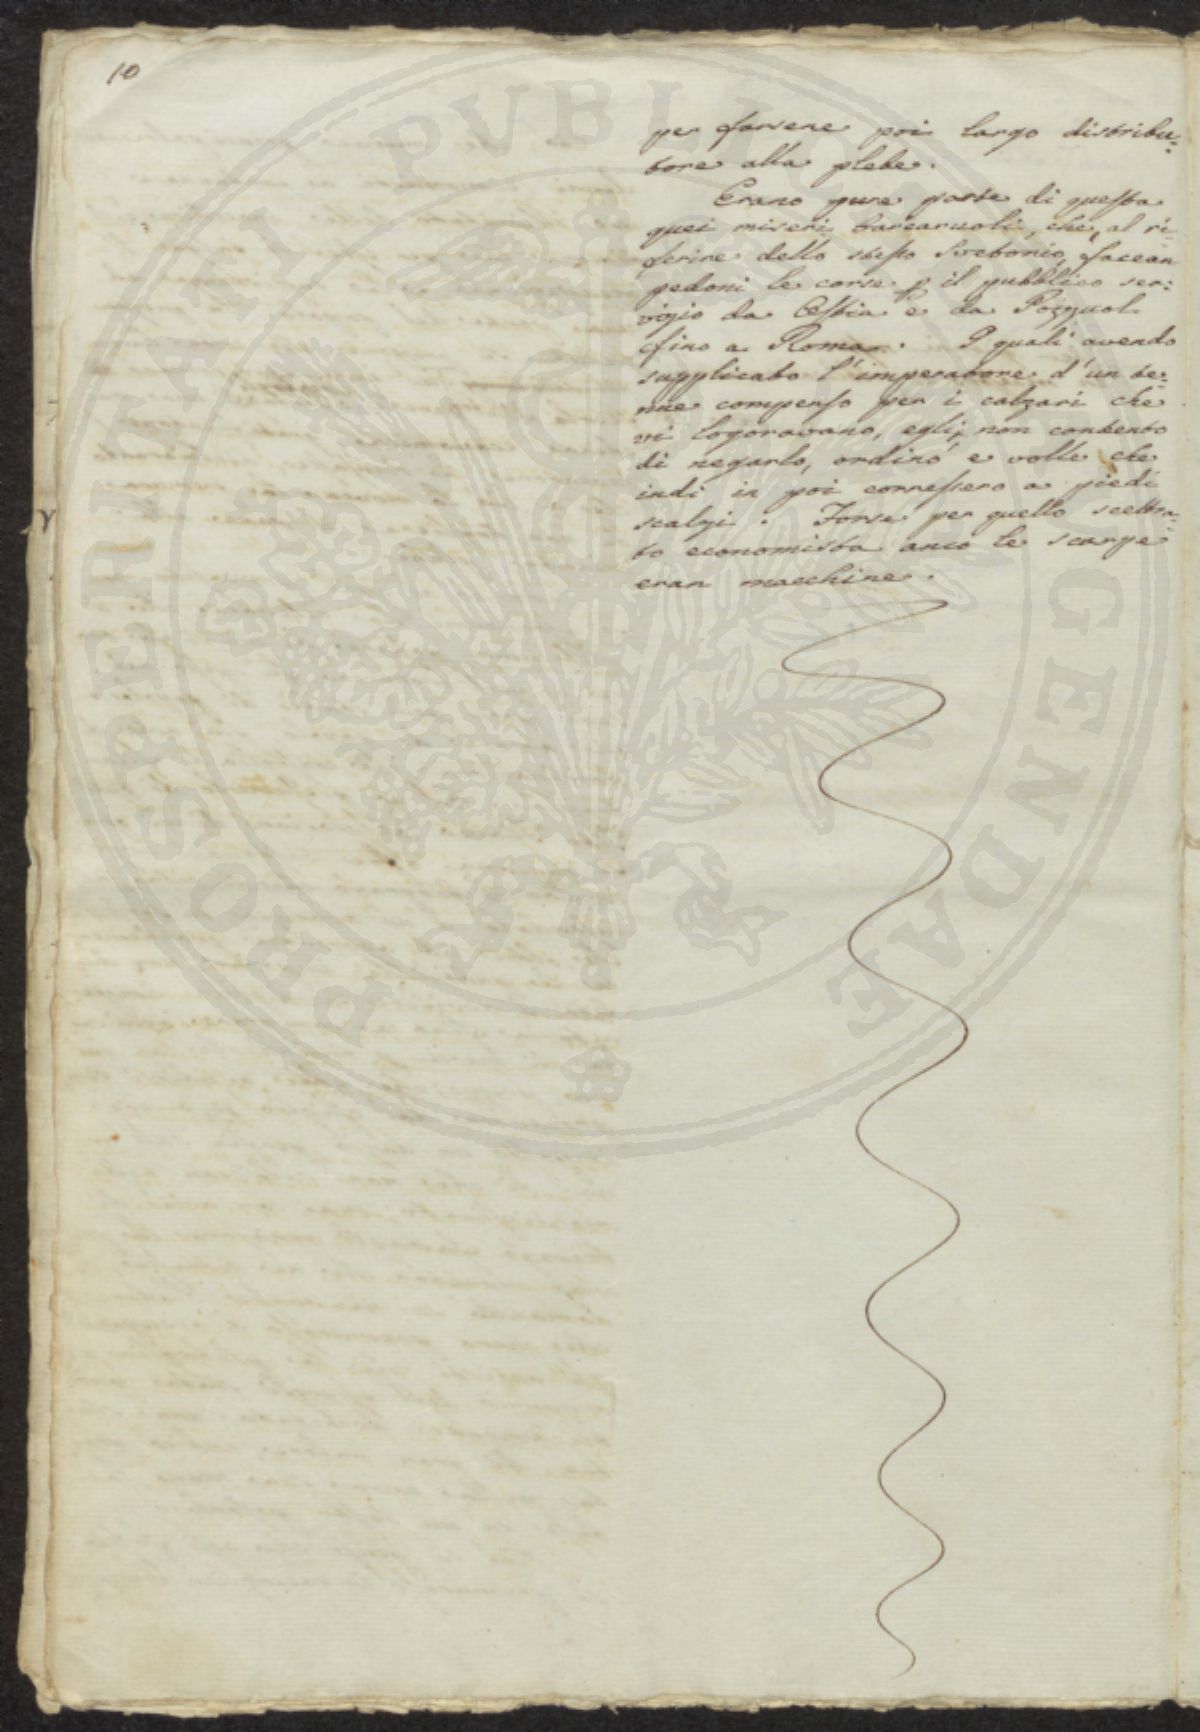 10
per farsene poi largo distribu=
tore alla plebe.
Erano pure parte di questa
quei miseri barcaruoli, che, al ri=
ferire dello stesso Svetonio, facean
pedoni le corse p il pubblico ser=
vigio da Ostia e da Pozzuol
fino a Roma. I quali avendo
supplicato l'imperatore d'un te=
nue compenso per i calzari che
vi logoravano, egli, non contento
di negarlo, ordinò e volle che
indi in poi corressero a piedi
scalzi. Forse per quello scettra=
to economista anco le scarpe
eran macchine.
PROSPERITATI PVBLICAE AVGENDAE